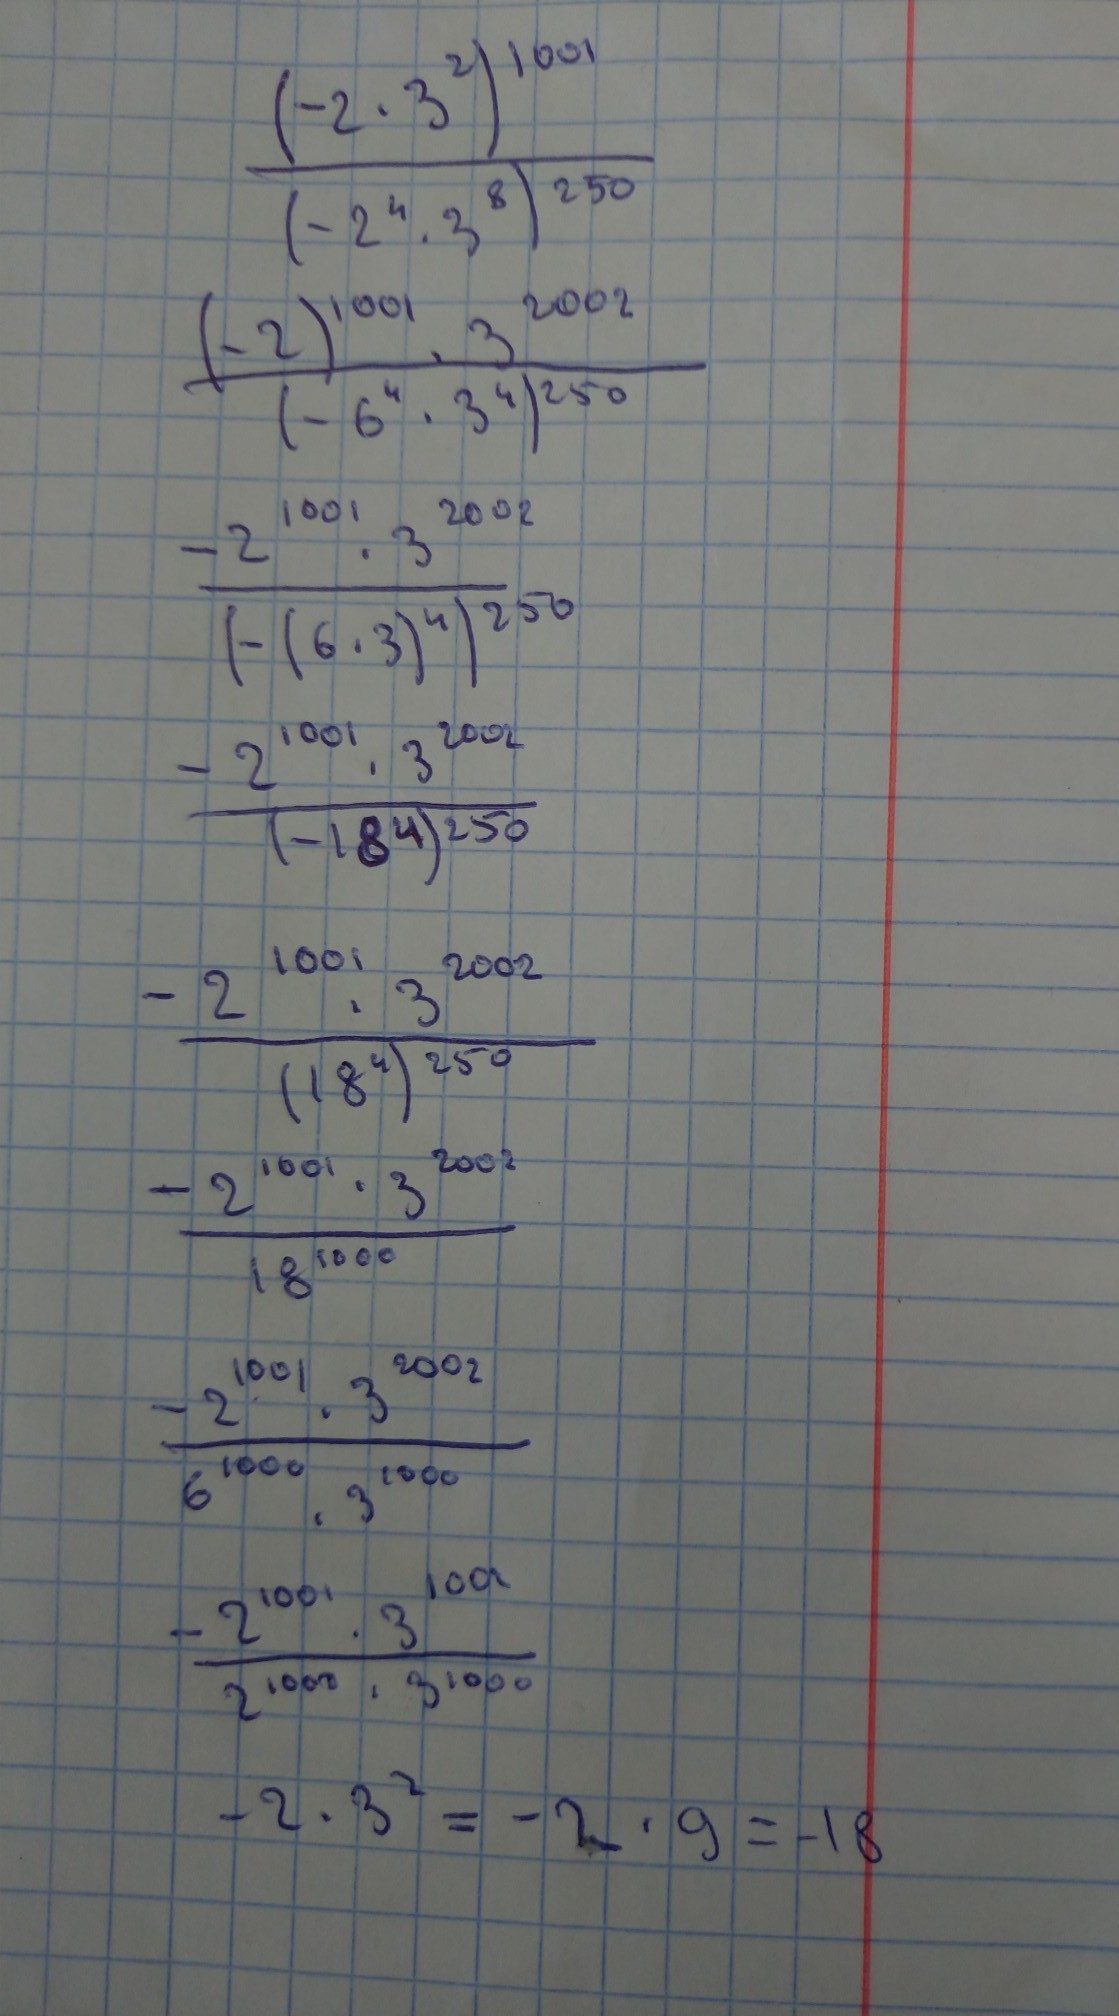 (-2 · 3²)¹⁰⁰¹
(-2⁴ · 3⁸)²⁵⁰
(-2)¹⁰⁰¹ · 3²⁰⁰²
(-6⁴ · 3⁴)²⁵⁰
-2¹⁰⁰¹ · 3²⁰⁰²
(-(6 · 3)⁴)²⁵⁰
-2¹⁰⁰¹ · 3²⁰⁰²
(-18⁴)²⁵⁰
-2¹⁰⁰¹ · 3²⁰⁰²
(18⁴)²⁵⁰
-2¹⁰⁰¹ · 3²⁰⁰²
18¹⁰⁰⁰
-2¹⁰⁰¹ · 3²⁰⁰²
6¹⁰⁰⁰ · 3¹⁰⁰⁰
-2¹⁰⁰¹ · 3¹⁰⁰²
2¹⁰⁰⁰ · 3¹⁰⁰⁰
-2 · 3² = -2 · 9 = -18